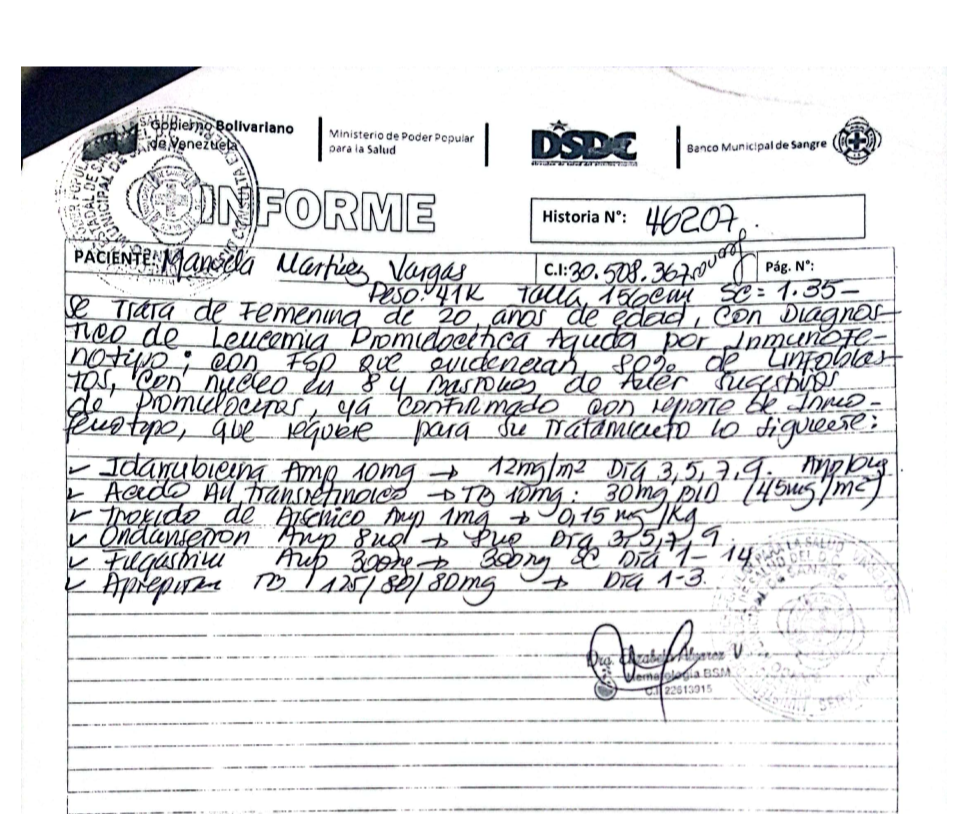 Gobierno Bolivariano
de Venezuela
Ministerio de Poder Popular
para la Salud
DSDC
Banco Municipal de Sangre
INFORME
Historia N°: 46207.
PACIENTE: Manuela Martinez Vargas C.I: 30.508.367 Pág. N°:
Peso: 41K Talla 156cm SC = 1.35-
Se Trata de Femenina de 20 años de edad, con Diagnos-
tico de Leucemia Promielocitica Aguda por Inmunofe-
notipo; con FSP que evidencian, 80% de Linfoblas-
tos, con nucleo en 8 y Bastones de Auer sugestivos
de Promielocitos, ya confirmado con reporte de Inmo-
fenotipo, que requiere para su Tratamiento lo siguiente:
✓ Idarubicina Amp 10mg → 12mg/m² Dia 3,5,7,9.
✓ Acido All transretinoico → TB 10mg: 30mg BID (45mg/m²)
✓ Trioxido de Arsenico Amp 1mg → 0,15 mg/Kg
✓ Ondansetron Amp 8mg → 8mg Dia 3,5,7,9.
✓ Filgastrim Amp 300mg → 300mg SC Dia 1-14
✓ Aprepitan TB 125/80/80mg → Dia 1-3.
Dra. Elizabeth Alvarez V
Hematologia BSM
C.I. 22613915